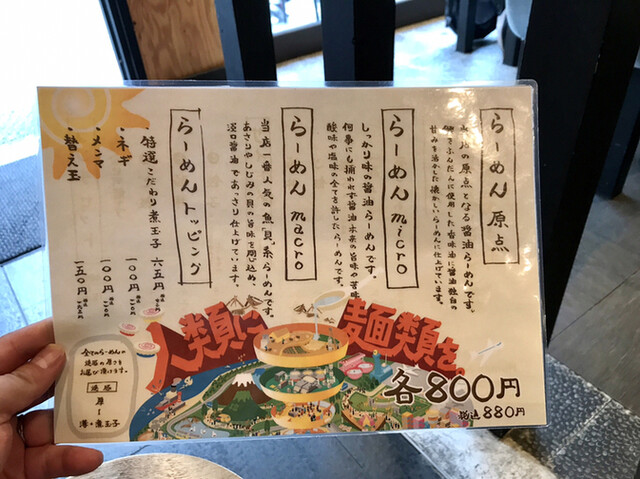 らーめん 原点
の原点となる醤油らーめんです。
ふんだんに使用した香味油に醤油独自の
甘みを活かした懐かしいらーめんに仕上げています。
らーめん micro
しっかり味の醤油らーめんです。
何事にも捕われず醤油本来の旨味や苦味
酸味や塩味の全てを許したらーめんです。
らーめん macro
当店一番人気の魚貝系らーめんです。
あさりやしじみの貝の旨味を閉じ込め、
淡口醤油であっさり仕上げています。
らーめんトッピング
特選こだわり煮玉子 六五円
・ネギ 一〇〇円
・メンマ 一〇〇円
・替え玉 一五〇円
人類に麺類を。
各800円
税込880円
全てのらーめんの
お選び頂けます。
厚
薄+煮玉子